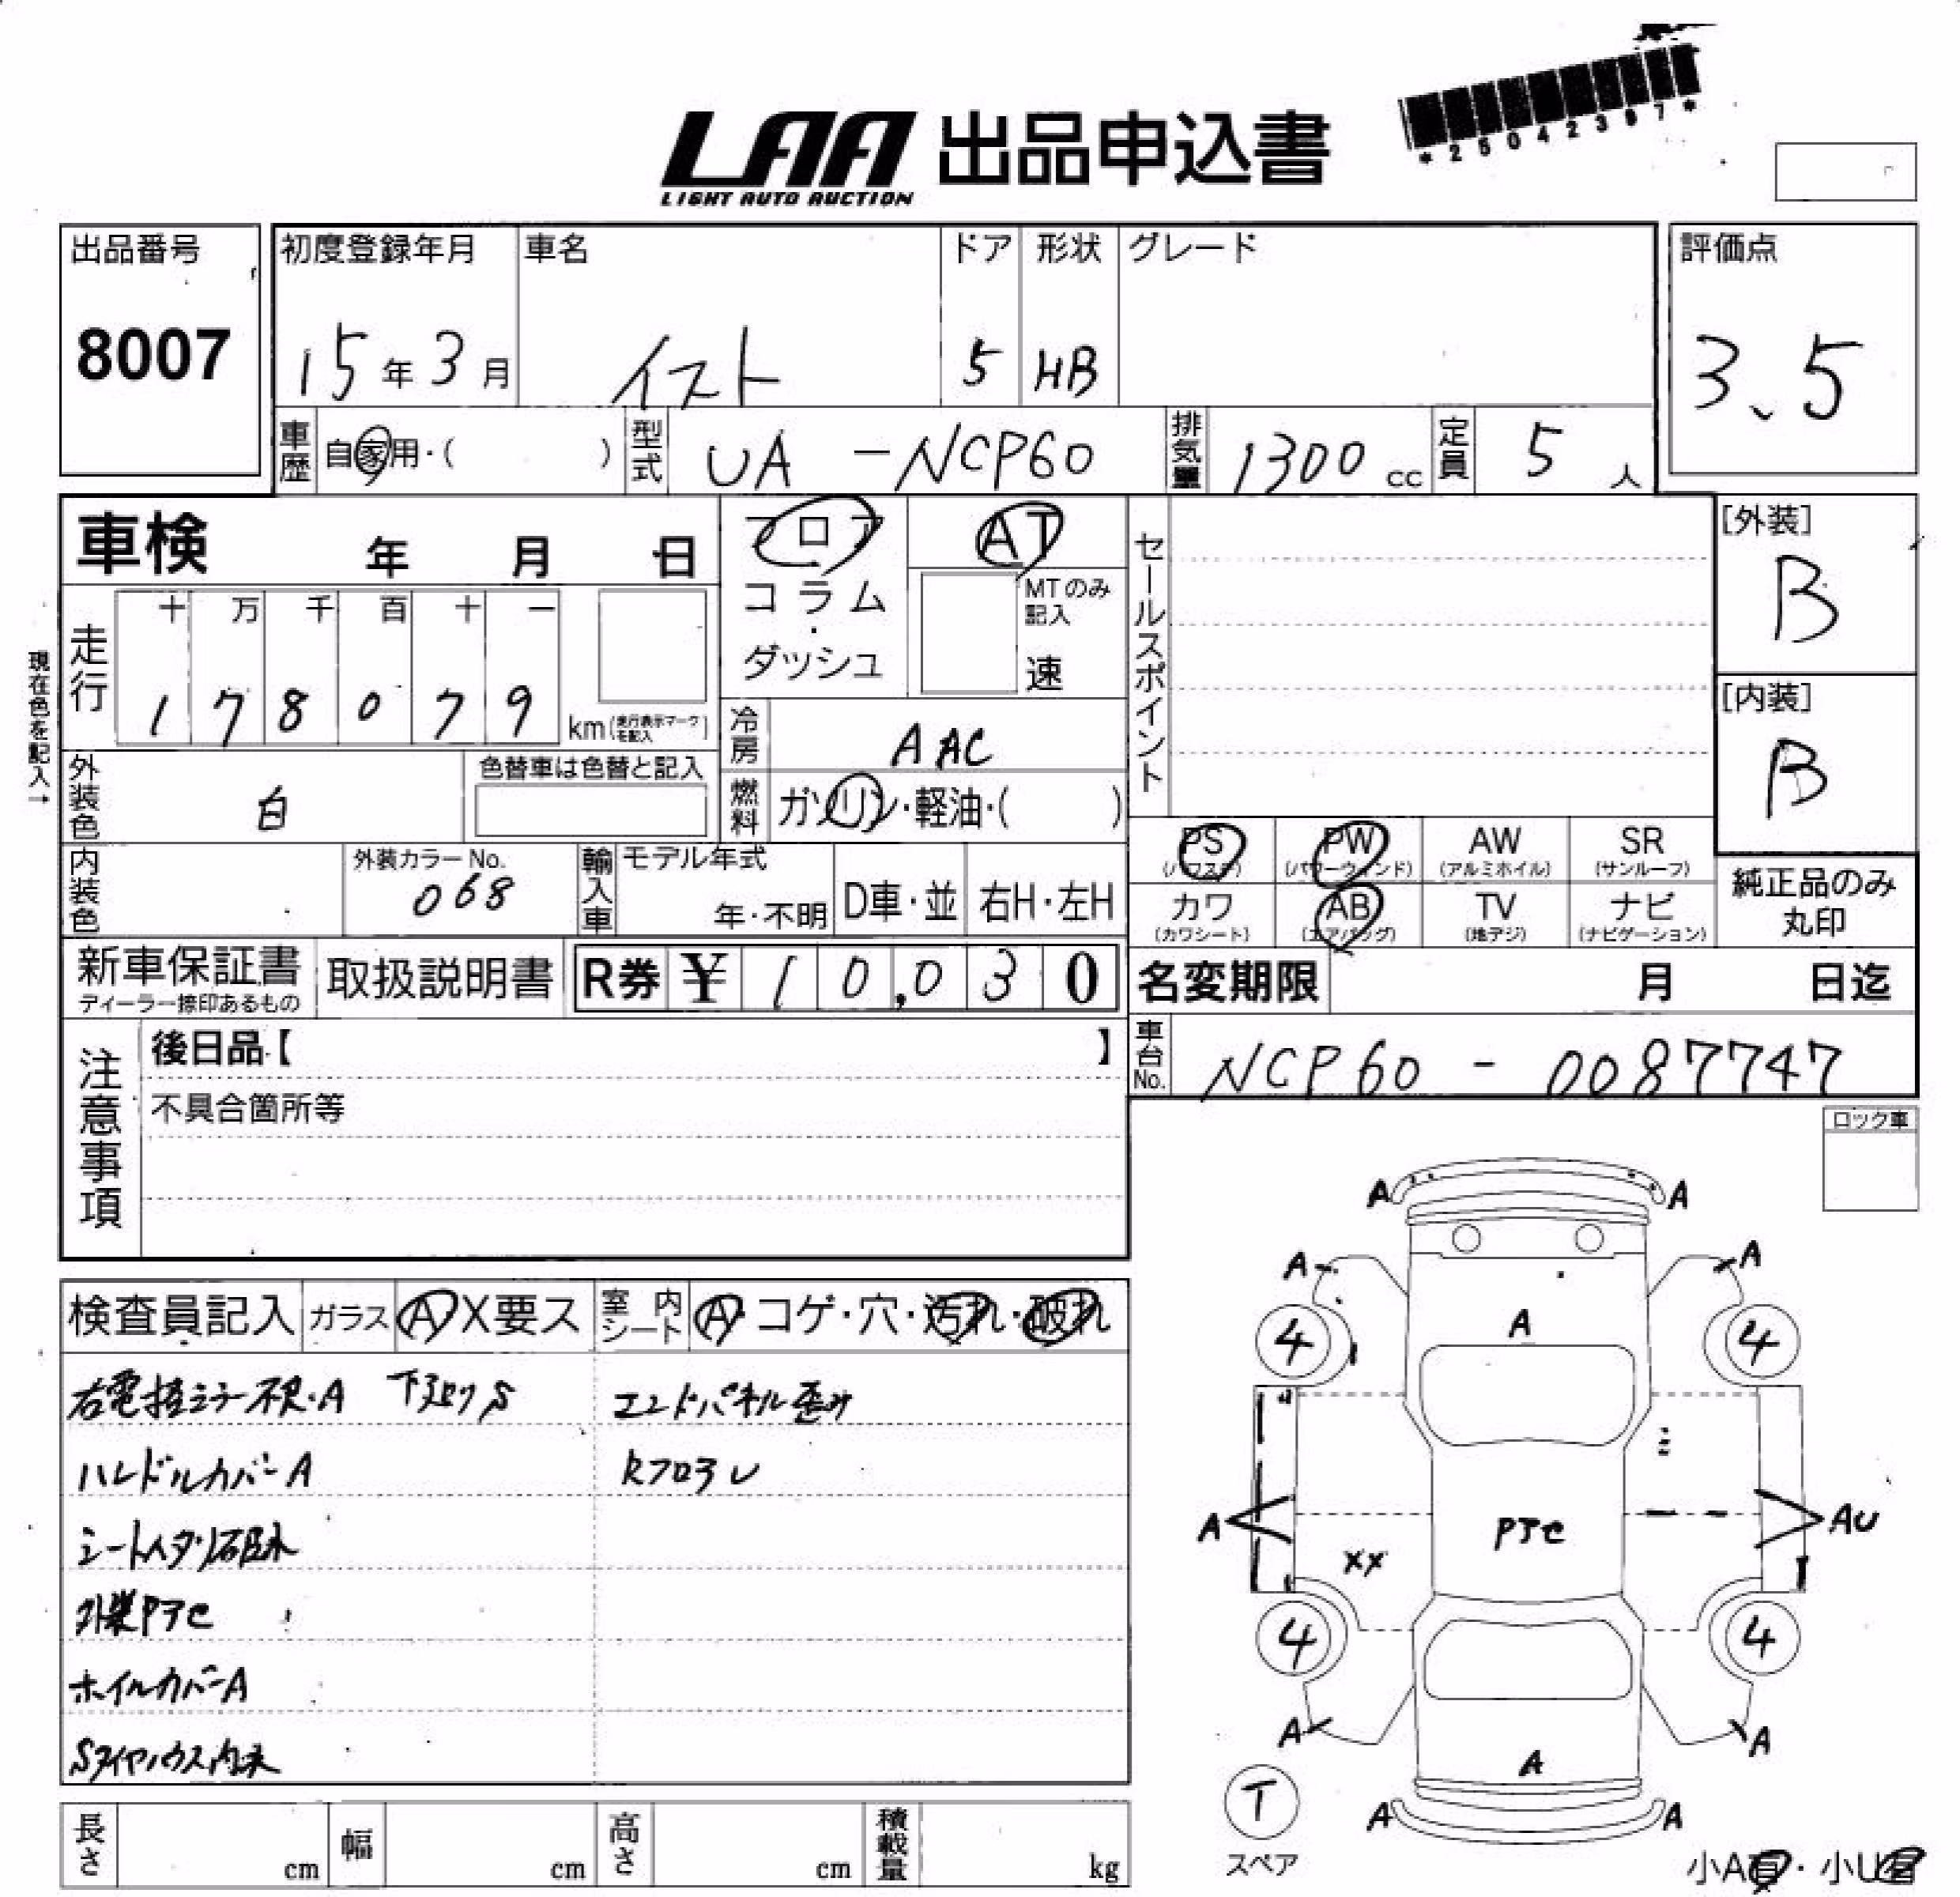 LAA 出品申込書
LIGHT AUTO AUCTION
*25042367*
出品番号
8007
初度登録年月
15年3月
車名
イスト
ドア
5
形状
HB
グレード
評価点
3.5
車歴 自家用・( )
型式 UA-NCP60
排気量 1300cc
定員 5人
車検 年 月 日
フロア・コラム・ダッシュ
AT
MTのみ記入
速
セールスポイント
[外装]
B
[内装]
B
現在色を記入→
走行
十 万 千 百 十 一
1 7 8 0 7 9 km(走行表示マークを記入)
冷房 AAC
外装色 白
色替車は色替と記入
燃料 ガソリン・軽油・( )
内装色
外装カラーNo.
068
輸入車 モデル年式
年・不明
D車・並
右H・左H
PS (パワステ)
PW (パワーウィンド)
AW (アルミホイル)
SR (サンルーフ)
カワ (カワシート)
AB (エアバッグ)
TV (地デジ)
ナビ (ナビゲーション)
純正品のみ丸印
新車保証書
ディーラー捺印あるもの
取扱説明書
R券 ¥ 10,030
名変期限 月 日迄
車台No. NCP60-0087747
注意事項
後日品【 】
不具合箇所等
ロック車
検査員記入
ガラス A X要ス
室内シート A・コゲ・穴・汚れ・破れ
右電格ミラー不良・A 下廻りS
エンドパネル歪み
ハンドルカバーA
RフロアU
外装PTC
ホイルカバーA
A A
A A
4 A 4
A PTC AU
XX
4 4
A A A
T
スペア
A A
小A有・小U有
長さ cm
幅 cm
高さ cm
積載量 kg